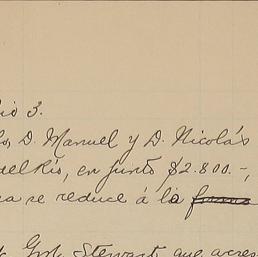 io 3.
lo, D. Manuel y D. Nicolás
del Río, en junto $2.800.-,
a se reduce á lo forma
Gmo Stewart que acres